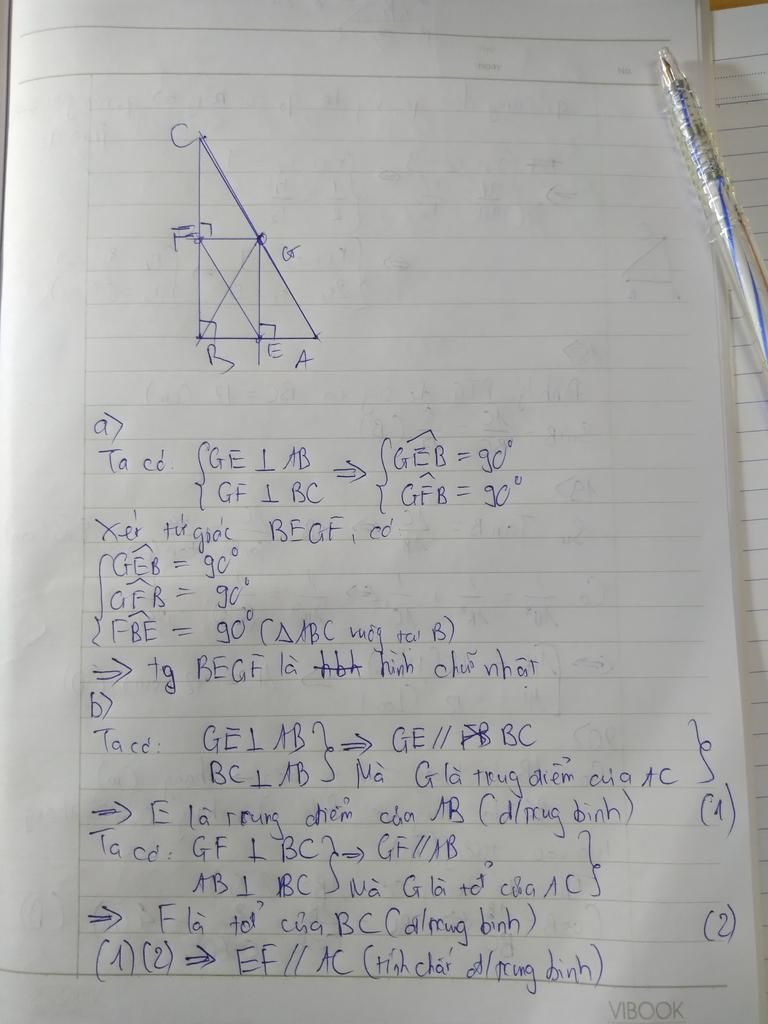 C
F
G
B E A
a)
Ta có: { GE ⊥ AB ⇒ { GÊB = 90°
{ GF ⊥ BC { GF̂B = 90°
Xét tứ giác BEGF, có
{ GÊB = 90°
GF̂B = 90°
{ FB̂E = 90° (△ABC vuông tại B)
⇒ tg BEGF là hình chữ nhật
b)
Ta có: GE ⊥ AB } ⇒ GE // BC }
BC ⊥ AB } Mà G là trung điểm của AC
⇒ E là trung điểm của AB (đ/trung bình) (1)
Ta có: GF ⊥ BC } ⇒ GF // AB }
AB ⊥ BC } Mà G là tđ' của AC }
⇒ F là tđ' của BC (đ/trung bình) (2)
(1) (2) ⇒ EF // AC (tính chất đ/trung bình)
VIBOOK